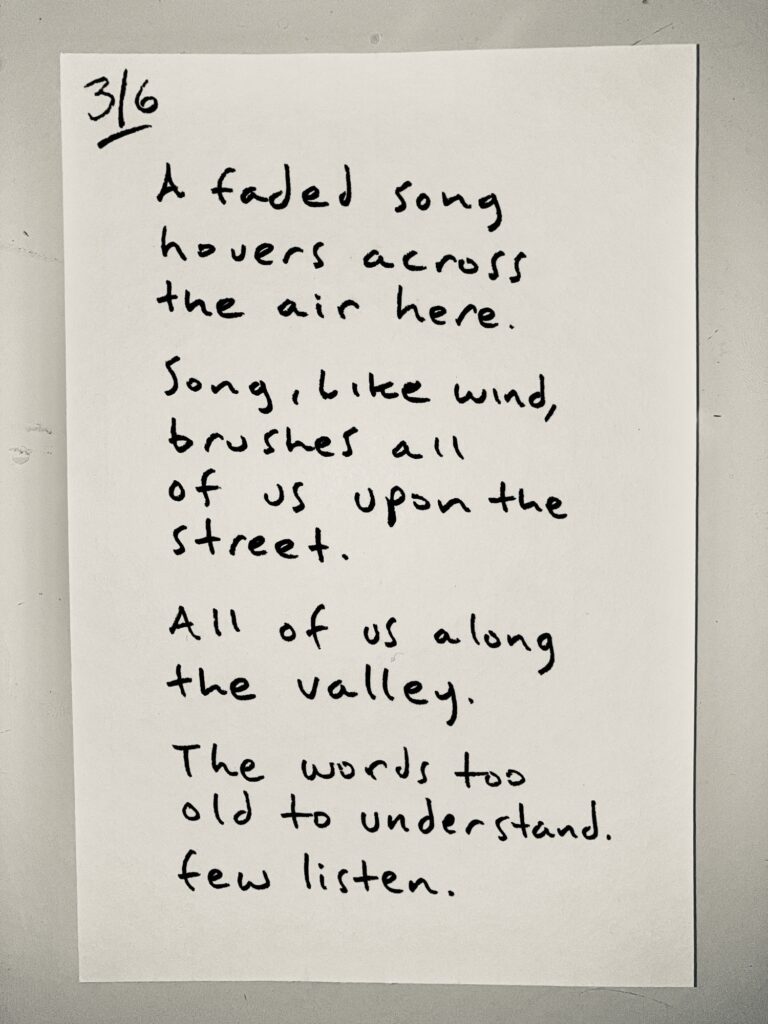 3/6
A faded song
hovers across
the air here.
Song, like wind,
brushes all
of us upon the
street.
All of us along
the valley.
The words too
old to understand.
few listen.